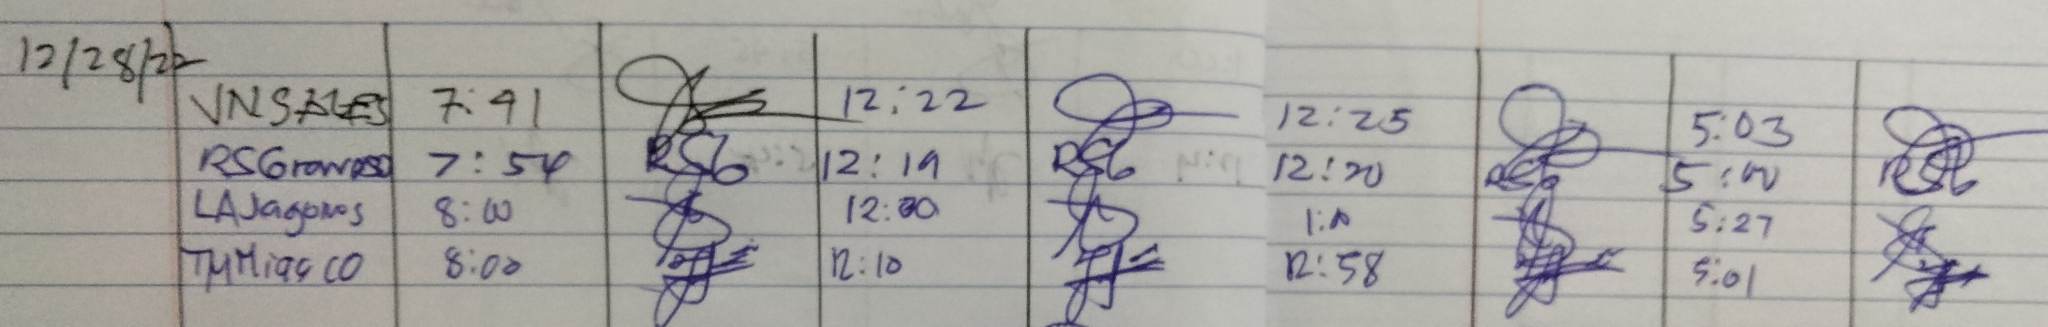 12/28/22
VNSALES 7:41 12:22 12:25 5:03
RSGromeso 7:54 RSG 12:19 RSG 12:20 RSG 5:00 RSG
LAJagonos 8:00 12:00 1:00 5:27
TMMiasco 8:00 12:10 12:58 5:01